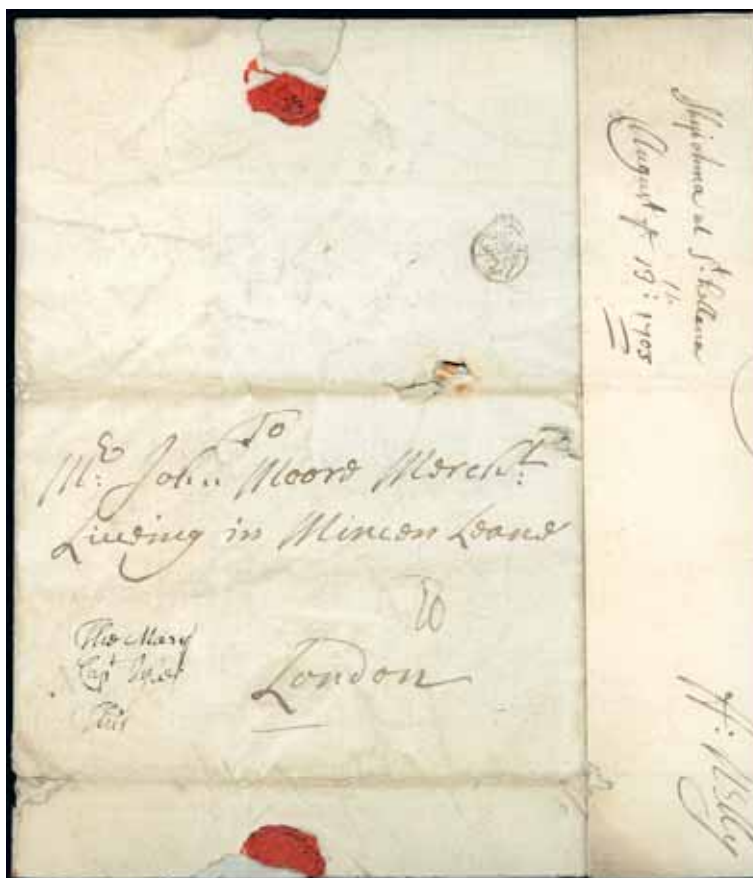 To
Mr: John Moore Mercht:
Liueing in Mincen Leane
London
The Mary
Capt
This
at St. Hellena
August ye 19th: 1705